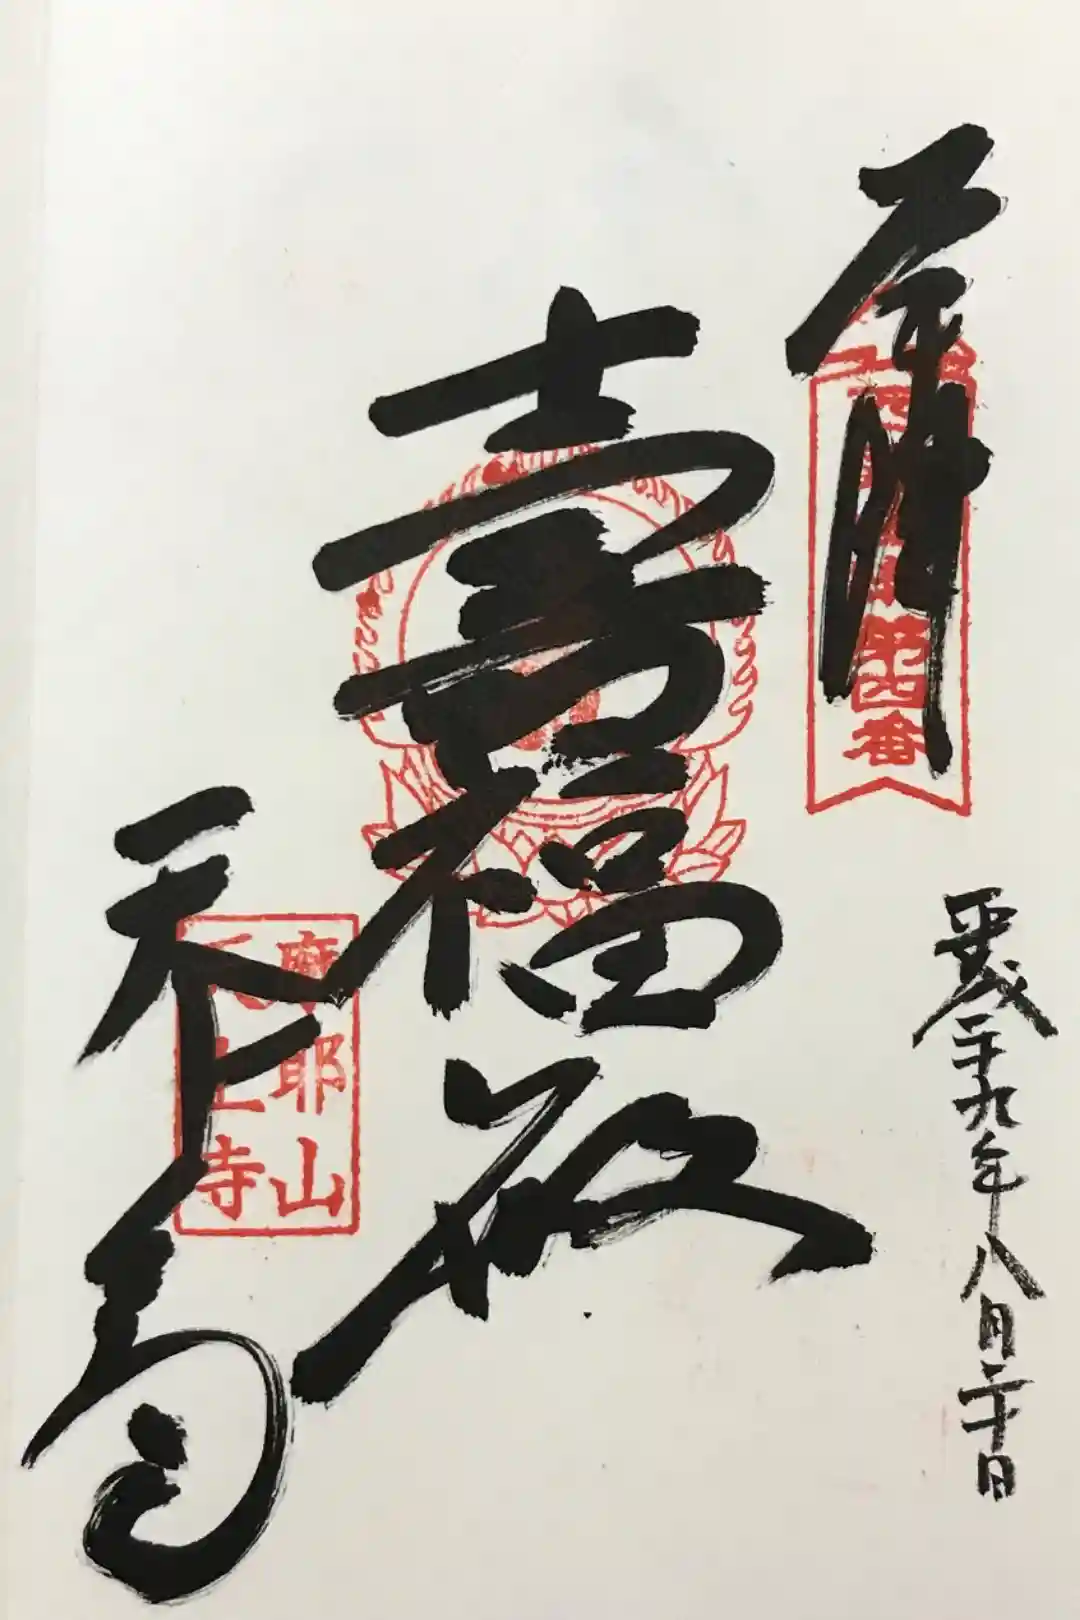 奉拝
第四番
平成二十九年八月二十日
壽福
天上寺
摩耶山
天上寺